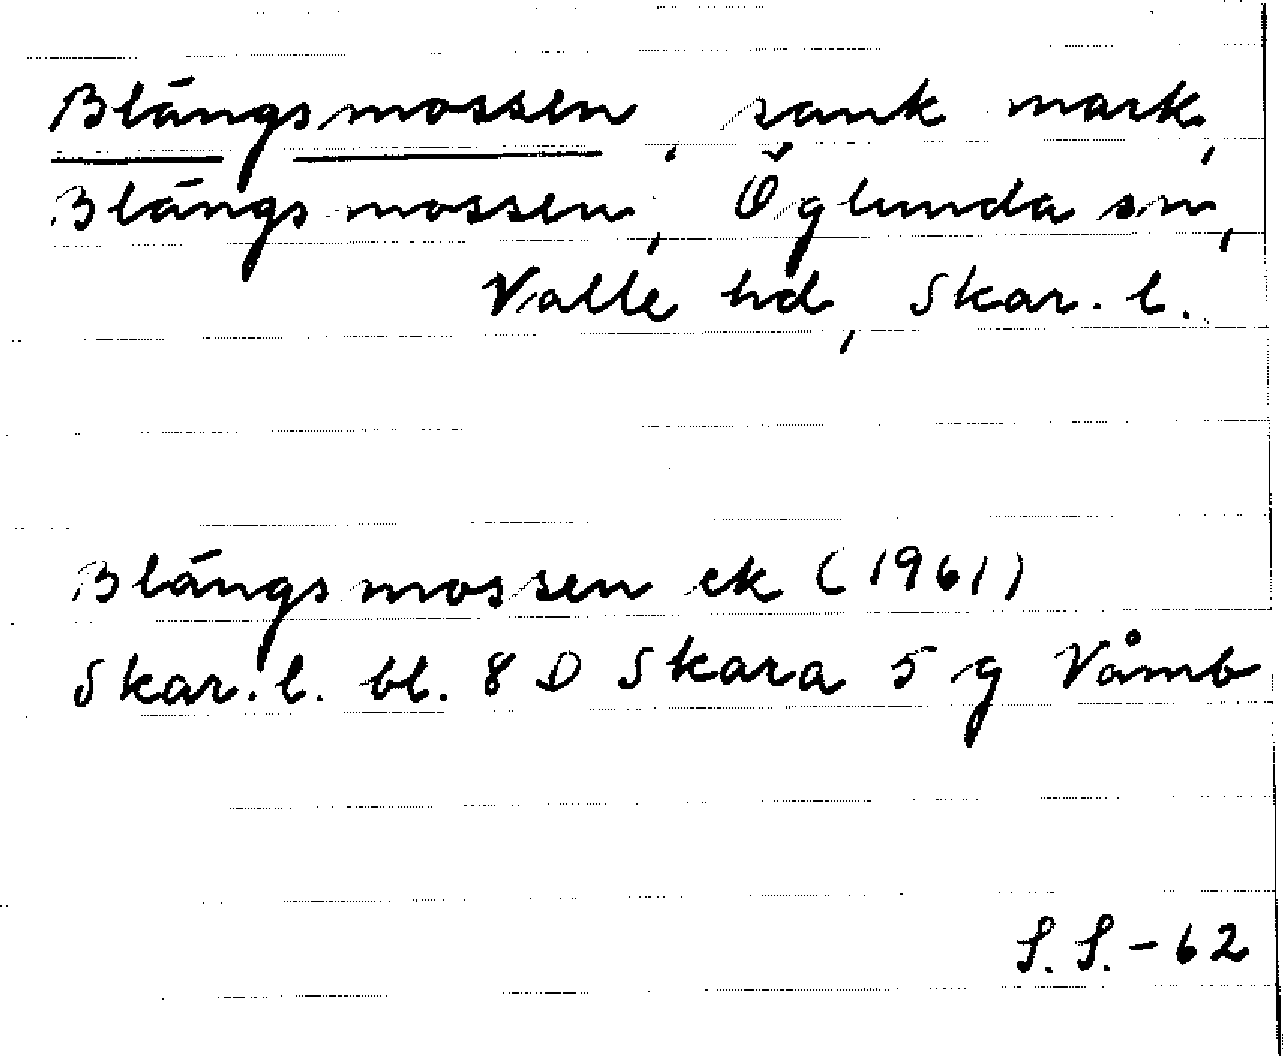 Blängsmossen, sank mark,
Blängsmossen, Öglunda sn,
Valle hd, Skar. l.
Blängsmossen ek (1961)
Skar. l. bl. 8 D Skara 5 g Våmb
S. S. - 62